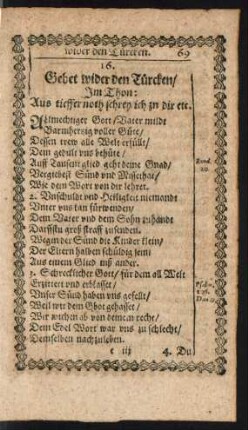 wider den Türcken. 69
16.
Gebet wider den Türcken/
Im Thon:
Aus tieffer noth schrey ich zu dir etc.
Allmechtiger Gott/ Vater mildt
Barmhertzig voller Güte/
Dessen trew alle Welt erfüllt/
Dem gedult vns behüte/
Auff Tausent glied geht deine Gnad/
Vergiebest Sünd vnd Missethat/
Wie dein Wort von dir lehret.
2. Vnschuldt vnd Heiligkeit niemandt
Vnter vns kan fürwenden/
Dem Vater vnd dem Sohn zuhandt
Darffstu groß straff zusenden.
Wegen der Sünd die Kinder klein/
Der Eltern halben schüldig sein/
Aus einem Glied ins ander.
3. Schrecklicher Gott/ für dem all Welt
Erzittert vnd erblasset/
Vnser Sünd haben vns gefellt/
Weil wir dein Gbot gehasset/
Wir wichen ab von deinem recht/
Dein Edel Wort war vns zu schlecht/
Demselben nachzuleben.
e iij 4. Du